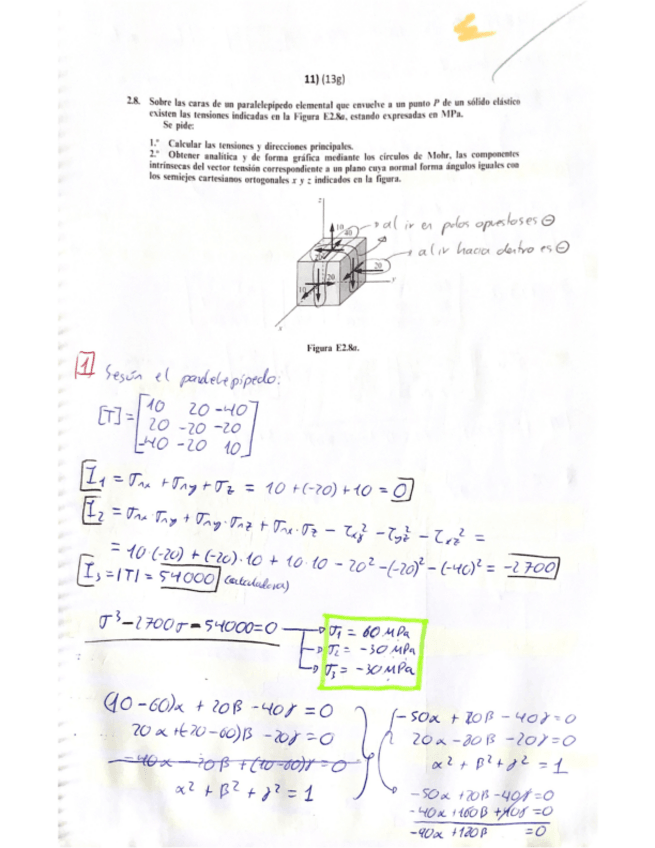 11) (13g)
2.8. Sobre las caras de un paralelepípedo elemental que envuelve a un punto P de un sólido elástico
existen las tensiones indicadas en la Figura E2.8a, estando expresadas en MPa.
Se pide:
1.º Calcular las tensiones y direcciones principales.
2.º Obtener analítica y de forma gráfica mediante los círculos de Mohr, las componentes
intrínsecas del vector tensión correspondiente a un plano cuya normal forma ángulos iguales con
los semiejes cartesianos ortogonales x y z indicados en la figura.
z
10
40
→ al ir en polos opuestos es ⊖
→ al ir hacia dentro es ⊖
20
20
20
10
y
x
Figura E2.8a.
1 Según el paralelepípedo:
[T] = [10 20 -40
20 -20 -20
-40 -20 10]
I1 = σnx + σny + σz = 10 + (-20) + 10 = 0
I2 = σnx · σny + σny · σnz + σnx · σz - τxy² - τyz² - τxz² =
= 10·(-20) + (-20)·10 + 10·10 - 20² - (-20)² - (-40)² = -2700
I3 = |T| = 54000 (calculadora)
σ³ - 2700σ - 54000 = 0 → σ1 = 60 MPa
→ σ2 = -30 MPa
→ σ3 = -30 MPa
(10-60)α + 20β - 40γ = 0
20α + (-20-60)β - 20γ = 0
-40α - 20β + (10-60)γ = 0
α² + β² + γ² = 1
-50α + 20β - 40γ = 0
20α - 80β - 20γ = 0
α² + β² + γ² = 1
-50α + 20β - 40γ = 0
-40α + 160β + 40γ = 0
-90α + 120β = 0